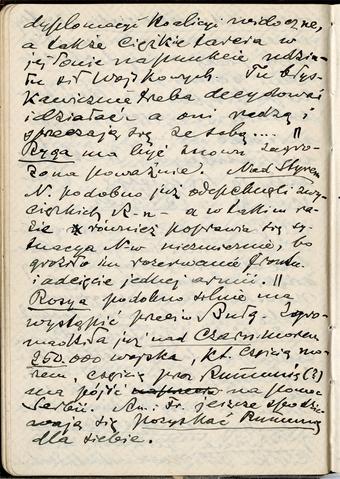 dyplomacyi Koalicyi widoczne,
a także ciężkie tarcia w
jej łonie na punkcie udzia-
łu sił wojskowych. Tu błys-
kawicznie trzeba decydować
i działać a oni radzą i
sprzeczają się ze sobą.... ||
Ryga ma być znowu zagro-
żona poważnie. Nad Styrem
N. podobno już odepchnęli zwy-
cięskich R-n - a w takim ra-
zie również poprawia się sy-
tuacya N-w niezmiernie, bo
groziło im rozerwanie frontu
i odcięcie jednej armii. ||
Rosya podobno silnie ma
wystąpić przeciw Bułg. Zgro-
madziła już nad Czarn. morzem
250.000 wojska, kt. częścią mo-
rzem, częścią przez Rumunię (?)
ma pójść na pomoc
Serbii. An. i Fr. jeszcze spodzie-
wają się pozyskać Rumunię
dla siebie.